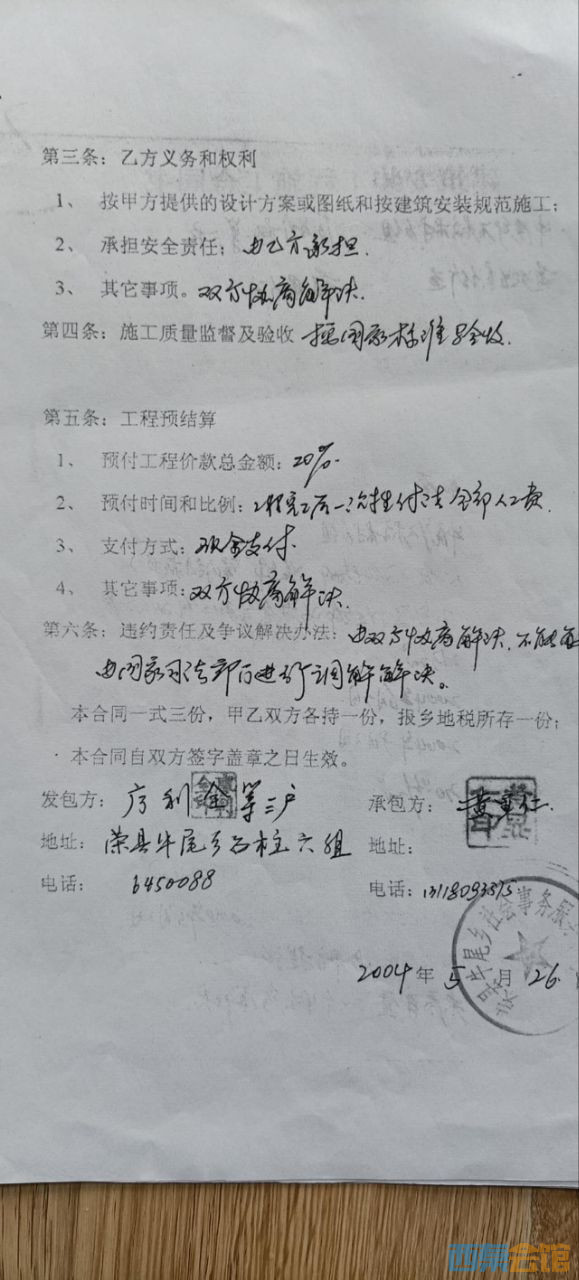 第三条：乙方义务和权利
1、 按甲方提供的设计方案或图纸和按建筑安装规范施工；
2、 承担安全责任；由乙方承担.
3、 其它事项。双方协商解决.
第四条：施工质量监督及验收 按国家标准验收.
第五条：工程预结算
1、 预付工程价款总金额：20%.
2、 预付时间和比例：工程完工后一次性付清全部人工费.
3、 支付方式：现金支付.
4、 其它事项：双方协商解决.
第六条：违约责任及争议解决办法：由双方协商解决.不能
由国家司法部门进行调解解决。
本合同一式三份，甲乙双方各持一份，报乡地税所存一份；
本合同自双方签字盖章之日生效。
发包方： 利金等三户 承包方： 黄
地址： 荣县牛尾乡石柱六组 地址：
电话： 6450088 电话：
牛尾乡社会事务服
2004年5月26
西祠会馆